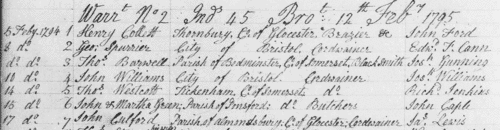 Warrt. No 2 Ind 45 Brot. 12th Feby 1795
5 Feby. 1794 1 Henry Collett Thornbury, C. of Glocester Brazier &c John Ford
8 do. 2 Geo. Spurrier City of Bristol Cordwainer Edwd. T. Cann
do do. 3 Thos. Barwell Parish of Bedminster, C. of Somerset, Black Smith Jos. Gunning
10 do. 4 John Williams City of Bristol Cordwainer Jos. Williams
14 do 5 Thos. Westcott Tickenham, C. of Somerset do Richd. Jenkins
16 do 6 John & Martha Green; Parish of Butchers John Caple
17 do. 7 John Parish of Almondsbury: C. of Glocester: Cordwainer Jas. Lewis